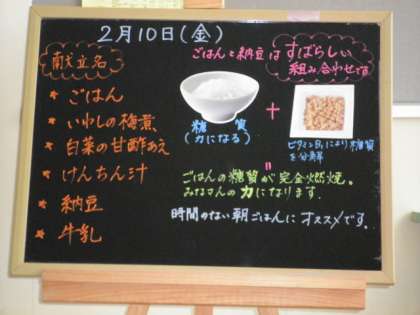 2月10日(金)
献立名
★ ごはん
★ いわしの梅煮
★ 白菜の甘酢あえ
★ けんちん汁
★ 納豆
★ 牛乳
ごはんと納豆はすばらしい
組み合わせです
糖質
(力になる)
+
ビタミンB₁により糖質
を分解
=
ごはんの糖質が完全燃焼。
みなさんの力になります。
時間のない朝ごはんにオススメです。